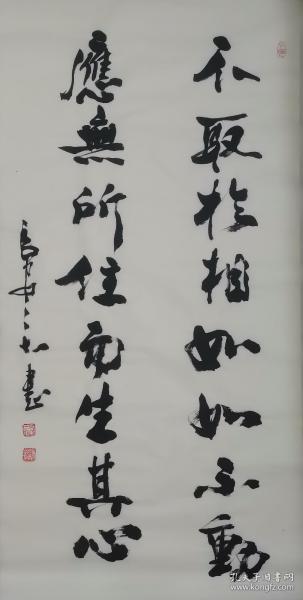 不取於相如如不動
應無所住而生其心
孔夫子旧书网